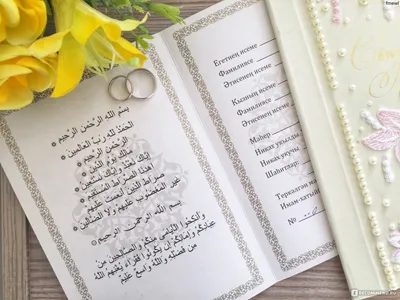 بسم الله الرحمن الرحيم
الحمد لله رب العالمين
الرحمن الرحيم
مالك يوم الدين
إياك نعبد وإياك نستعين
اهدنا الصراط المستقيم
صراط الذين أنعمت عليهم
غير المغضوب عليهم ولا الضالين
بسم الله الرحمن الرحيم
وأنكحوا الأيامى منكم والصالحين من
عبادكم وإمائكم إن يكونوا فقراء يغنهم الله
من فضله والله واسع عليم
Егетнең исеме
Фамилиясе
Әтисенең исеме
Кызның исеме
Фамилиясе
Әтисенең исеме
Мәһер
Никах укылды
Никах укучы
Шаһитлар
Теркәлгән
Имам-хатыйб
№
IRECOMMEND.RU